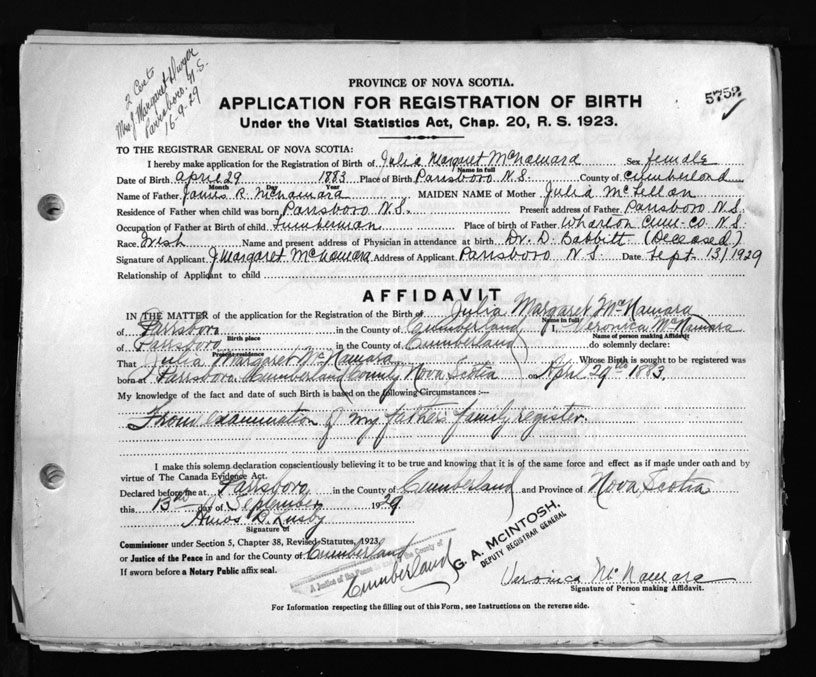 2 Certs
Mrs J Margaret Dwyer
Parrsboro N.S.
16-9-29
5752
PROVINCE OF NOVA SCOTIA.
APPLICATION FOR REGISTRATION OF BIRTH
Under the Vital Statistics Act, Chap. 20, R. S. 1923.
TO THE REGISTRAR GENERAL OF NOVA SCOTIA:
I hereby make application for the Registration of Birth of Julia Margaret McNamara Sex female
Name in full
Date of Birth April 29 1883 Place of Birth Parrsboro N.S. County of Cumberland
Month Day Year
Name of Father James R. McNamara MAIDEN NAME of Mother Julia McLellan
Residence of Father when child was born Parrsboro N.S. Present address of Father Parrsboro N.S.
Occupation of Father at Birth of child Lumberman Place of birth of Father Wharton Cum-Co N.S.
Race Irish Name and present address of Physician in attendance at birth Dr. D. Babbitt (Deceased)
Signature of Applicant J Margaret McNamara Address of Applicant Parrsboro N.S. Date Sept 13/1929
Relationship of Applicant to child
AFFIDAVIT
IN THE MATTER of the application for the Registration of the Birth of Julia Margaret McNamara
Name in full
of Parrsboro in the County of Cumberland I, Veronica McNamara
Birth place Name of person making Affidavit
of Parrsboro in the County of Cumberland do solemnly declare:
Present residence
That Julia Margaret McNamara Whose Birth is sought to be registered was
born at Parrsboro Cumberland County Nova Scotia on April 29th 1883.
My knowledge of the fact and date of such Birth is based on the following Circumstances :—
From examination of my fathers family register.
I make this solemn declaration conscientiously believing it to be true and knowing that it is of the same force and effect as if made under oath and by
virtue of The Canada Evidence Act.
Declared before me at Parrsboro in the County of Cumberland and Province of Nova Scotia
this 13th day of September 1929
Amos B. Lusby
Signature of
Commissioner under Section 5, Chapter 38, Revised Statutes, 1923
or Justice of the Peace in and for the County of Cumberland
If sworn before a Notary Public affix seal.
A Justice of the Peace in and for the County of
Cumberland
G. A. McINTOSH,
DEPUTY REGISTRAR GENERAL
Veronica McNamara
Signature of Person making Affidavit.
For Information respecting the filling out of this Form, see Instructions on the reverse side.